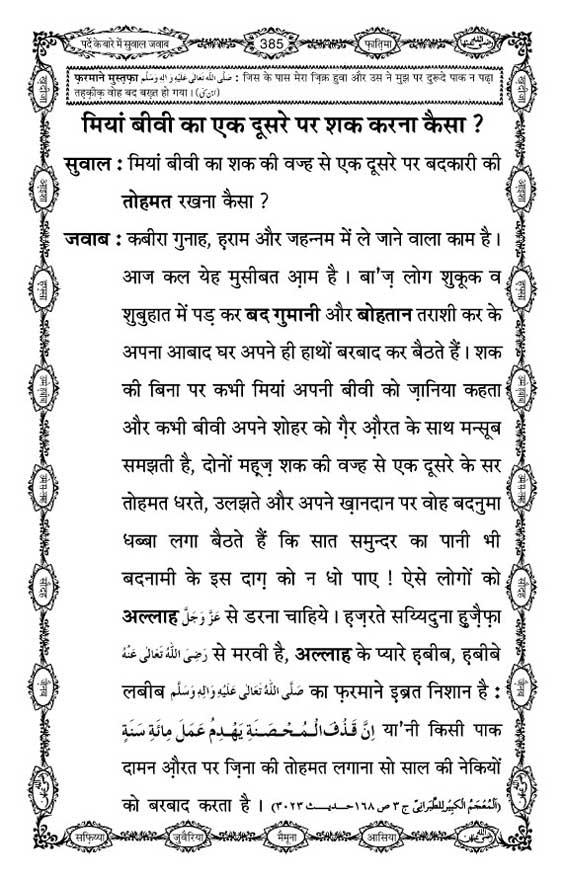 पर्दे के बारे में सुवाल जवाब
385
फ़ातिमा
फ़रमाने मुस्तफ़ा صَلَّى اللهُ تَعَالٰى عَلَيْهِ وَاٰلِهٖ وَسَلَّم : जिस के पास मेरा ज़िक्र हुवा और उस ने मुझ पर दुरूदे पाक न पढ़ा
तहक़ीक़ वोह बद बख़्त हो गया।
मियां बीवी का एक दूसरे पर शक करना कैसा ?
सुवाल : मियां बीवी का शक की वज्ह से एक दूसरे पर बदकारी की
तोहमत रखना कैसा ?
जवाब : कबीरा गुनाह, ह़राम और जहन्नम में ले जाने वाला काम है।
आज कल येह मुसीबत आ़म है। बा'ज़ लोग शुकूक व
शुबुहात में पड़ कर बद गुमानी और बोहतान तराशी कर के
अपना आबाद घर अपने ही हाथों बरबाद कर बैठते हैं। शक
की बिना पर कभी मियां अपनी बीवी को ज़ानिया कहता
और कभी बीवी अपने शोहर को ग़ैर औ़रत के साथ मन्सूब
समझती है, दोनों मह़ज़ शक की वज्ह से एक दूसरे के सर
तोहमत धरते, उलझते और अपने ख़ानदान पर वोह बदनुमा
धब्बा लगा बैठते हैं कि सात समुन्दर का पानी भी
बदनामी के इस दाग़ को न धो पाए ! ऐसे लोगों को
अल्लाह عَزَّوَجَلَّ से डरना चाहिये। ह़ज़रते सय्यिदुना हुज़ैफ़ा
رَضِىَ اللهُ تَعَالٰى عَنْهُ से मरवी है, अल्लाह के प्यारे ह़बीब, ह़बीबे
लबीब صَلَّى اللهُ تَعَالٰى عَلَيْهِ وَاٰلِهٖ وَسَلَّم का फ़रमाने इ़ब्रत निशान है :
اِنَّ قَذْفَ الْمُحْصَنَةِ يَهْدِمُ عَمَلَ مِائَةِ سَنَةٍ या'नी किसी पाक
दामन औ़रत पर ज़िना की तोहमत लगाना सो साल की नेकियों
को बरबाद करता है। (اَلْمُعْجَمُ الْكَبِيْر لِلطَّبَرَانِىّ ج ٣ ص ١٦٨ حديث ٣٠٢٣)
सफ़िय्या
जुवैरिया
मैमूना
आसिया